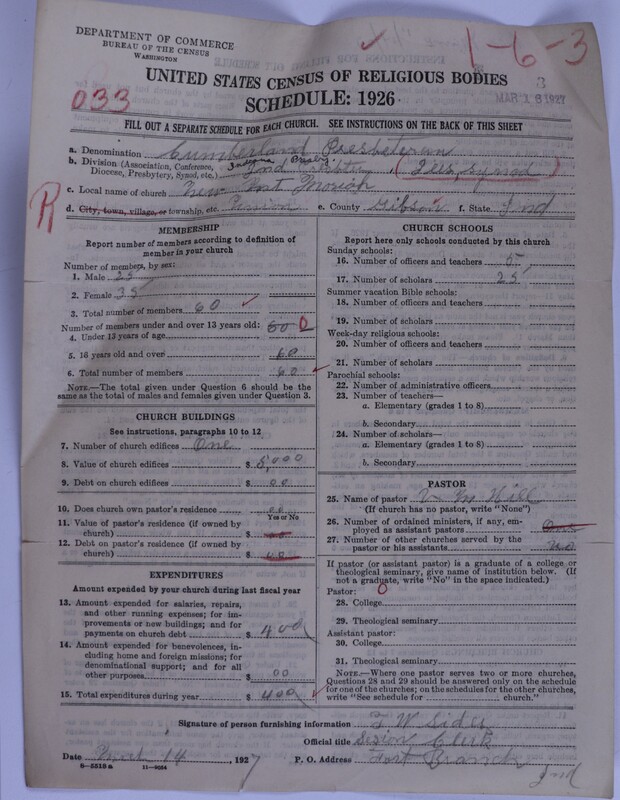 DEPARTMENT OF COMMERCE
BUREAU OF THE CENSUS
WASHINGTON
1-6-3
3
MAR 16 1927
033
UNITED STATES CENSUS OF RELIGIOUS BODIES
SCHEDULE: 1926
FILL OUT A SEPARATE SCHEDULE FOR EACH CHURCH. SEE INSTRUCTIONS ON THE BACK OF THIS SHEET
a. Denomination Cumberland Presbeteran
b. Division (Association, Conference,
Diocese, Presbytery, Synod, etc.) Ind
R
c. Local name of church New Mt Moriah
d. City, town, village, or township, etc. Union e. County Gibson f. State Ind
MEMBERSHIP
Report number of members according to definition of
member in your church
Number of members, by sex:
1. Male 25
2. Female 35
3. Total number of members 60
Number of members under and over 13 years old:
4. Under 13 years of age 60 0
5. 13 years old and over 60
6. Total number of members 60
NOTE.—The total given under Question 6 should be
the same as the total of males and females given under Question 3.
CHURCH BUILDINGS
See instructions, paragraphs 10 to 12
7. Number of church edifices One
8. Value of church edifices $ 5,000
9. Debt on church edifices $ 00
10. Does church own pastor's residence
Yes or No
11. Value of pastor's residence (if owned by
church) $
12. Debt on pastor's residence (if owned by
church) $ 00
EXPENDITURES
Amount expended by your church during last fiscal year
13. Amount expended for salaries, repairs,
and other running expenses; for im-
provements or new buildings; and for
payments on church debt $ 400
14. Amount expended for benevolences, in-
cluding home and foreign missions; for
denominational support; and for all
other purposes $ 00
15. Total expenditures during year $ 400
CHURCH SCHOOLS
Report here only schools conducted by this church
Sunday schools:
16. Number of officers and teachers 5
17. Number of scholars 25
Summer vacation Bible schools:
18. Number of officers and teachers
19. Number of scholars
Week-day religious schools:
20. Number of officers and teachers
21. Number of scholars
Parochial schools:
22. Number of administrative officers
23. Number of teachers—
a. Elementary (grades 1 to 8)
b. Secondary
24. Number of scholars—
a. Elementary (grades 1 to 8)
b. Secondary
PASTOR
25. Name of pastor V M Hill
(If church has no pastor, write "None")
26. Number of ordained ministers, if any, em-
ployed as assistant pastors
27. Number of other churches served by the
pastor or his assistants
If pastor (or assistant pastor) is a graduate of a college or
theological seminary, give name of institution below. (If
not a graduate, write "No" in the space indicated.)
Pastor: 0
28. College
29. Theological seminary
Assistant pastor:
30. College
31. Theological seminary
NOTE.—Where one pastor serves two or more churches,
Questions 28 and 29 should be answered only on the schedule
for one of the churches; on the schedules for the other churches,
write "See schedule for church."
Signature of person furnishing information
Official title Sesion Clerk
Date Mar 14, 1927 P. O. Address Fort Branch
Ind